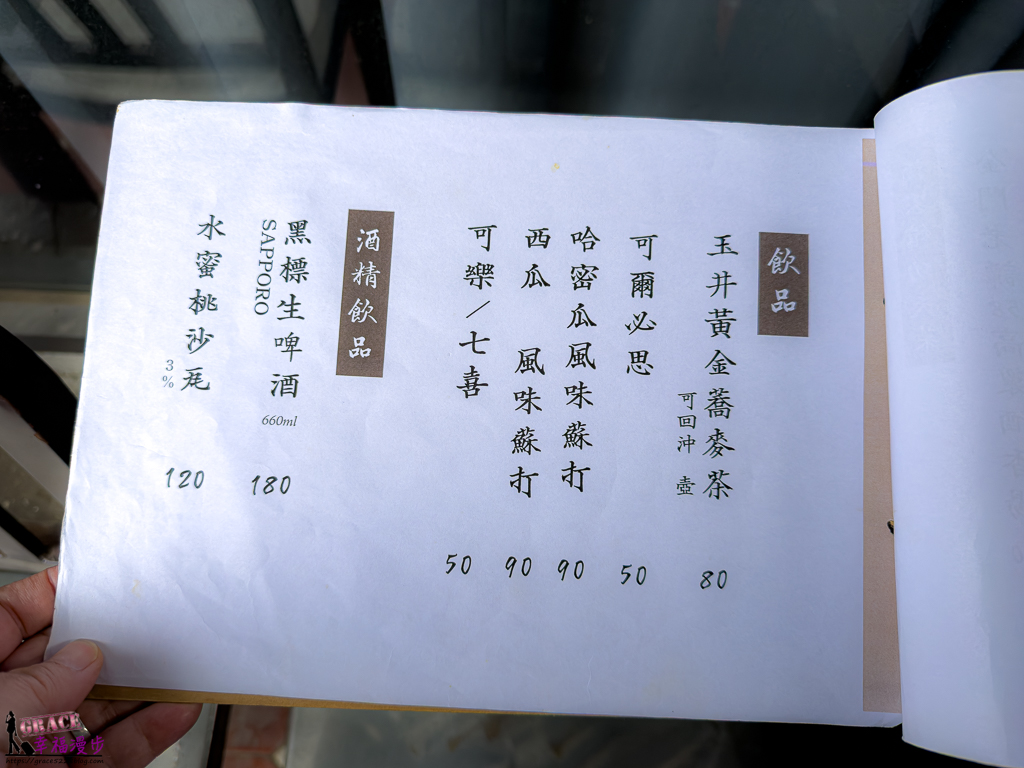 飲品
玉井黃金蕎麥茶
可回沖 壺
80
可爾必思
50
哈密瓜風味蘇打
90
西瓜 風味蘇打
90
可樂／七喜
50
酒精飲品
黑標生啤酒
SAPPORO
660ml
180
水蜜桃沙瓦
3%
120
GRACE
幸福漫步